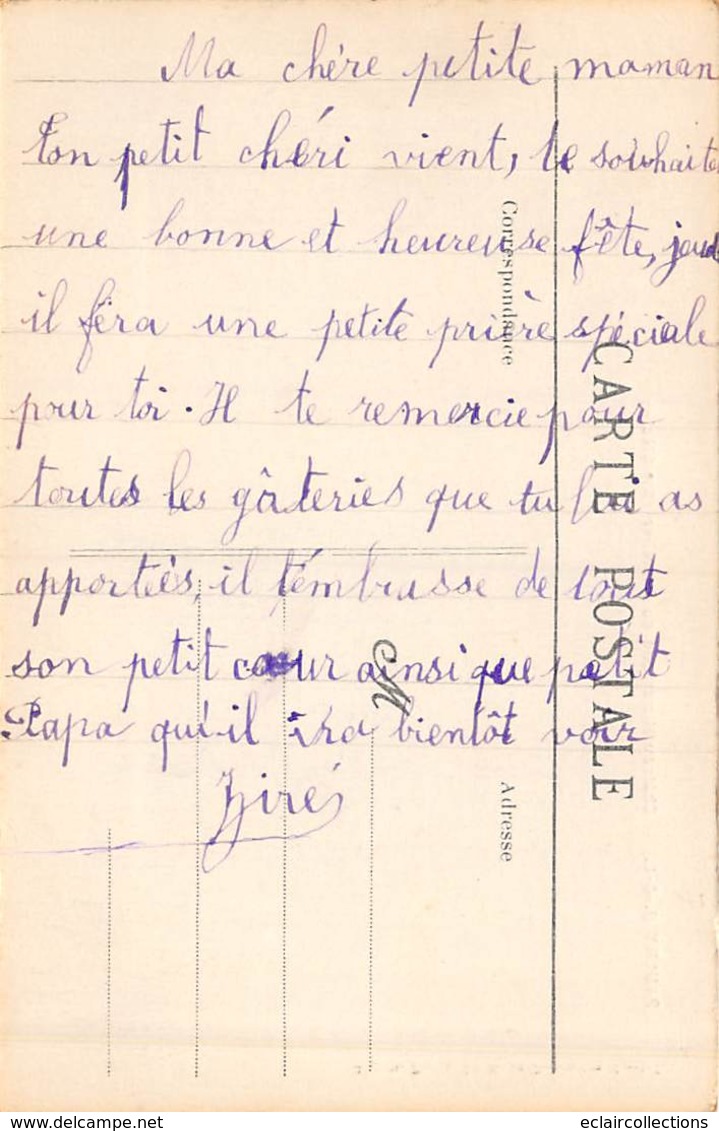 Ma chère petite maman
Ton petit chéri vient, te souhaite
une bonne et heureuse fête, jeudi
il féra une petite prière spéciale
pour toi. Il te remercie pour
toutes les gâteries que tu lui as
apportées, il t'embrasse de tout
son petit cœur ainsi que petit
Papa qu'il ira bientôt voir
Correspondance
CARTE POSTALE
M
Adresse
eclaircollections